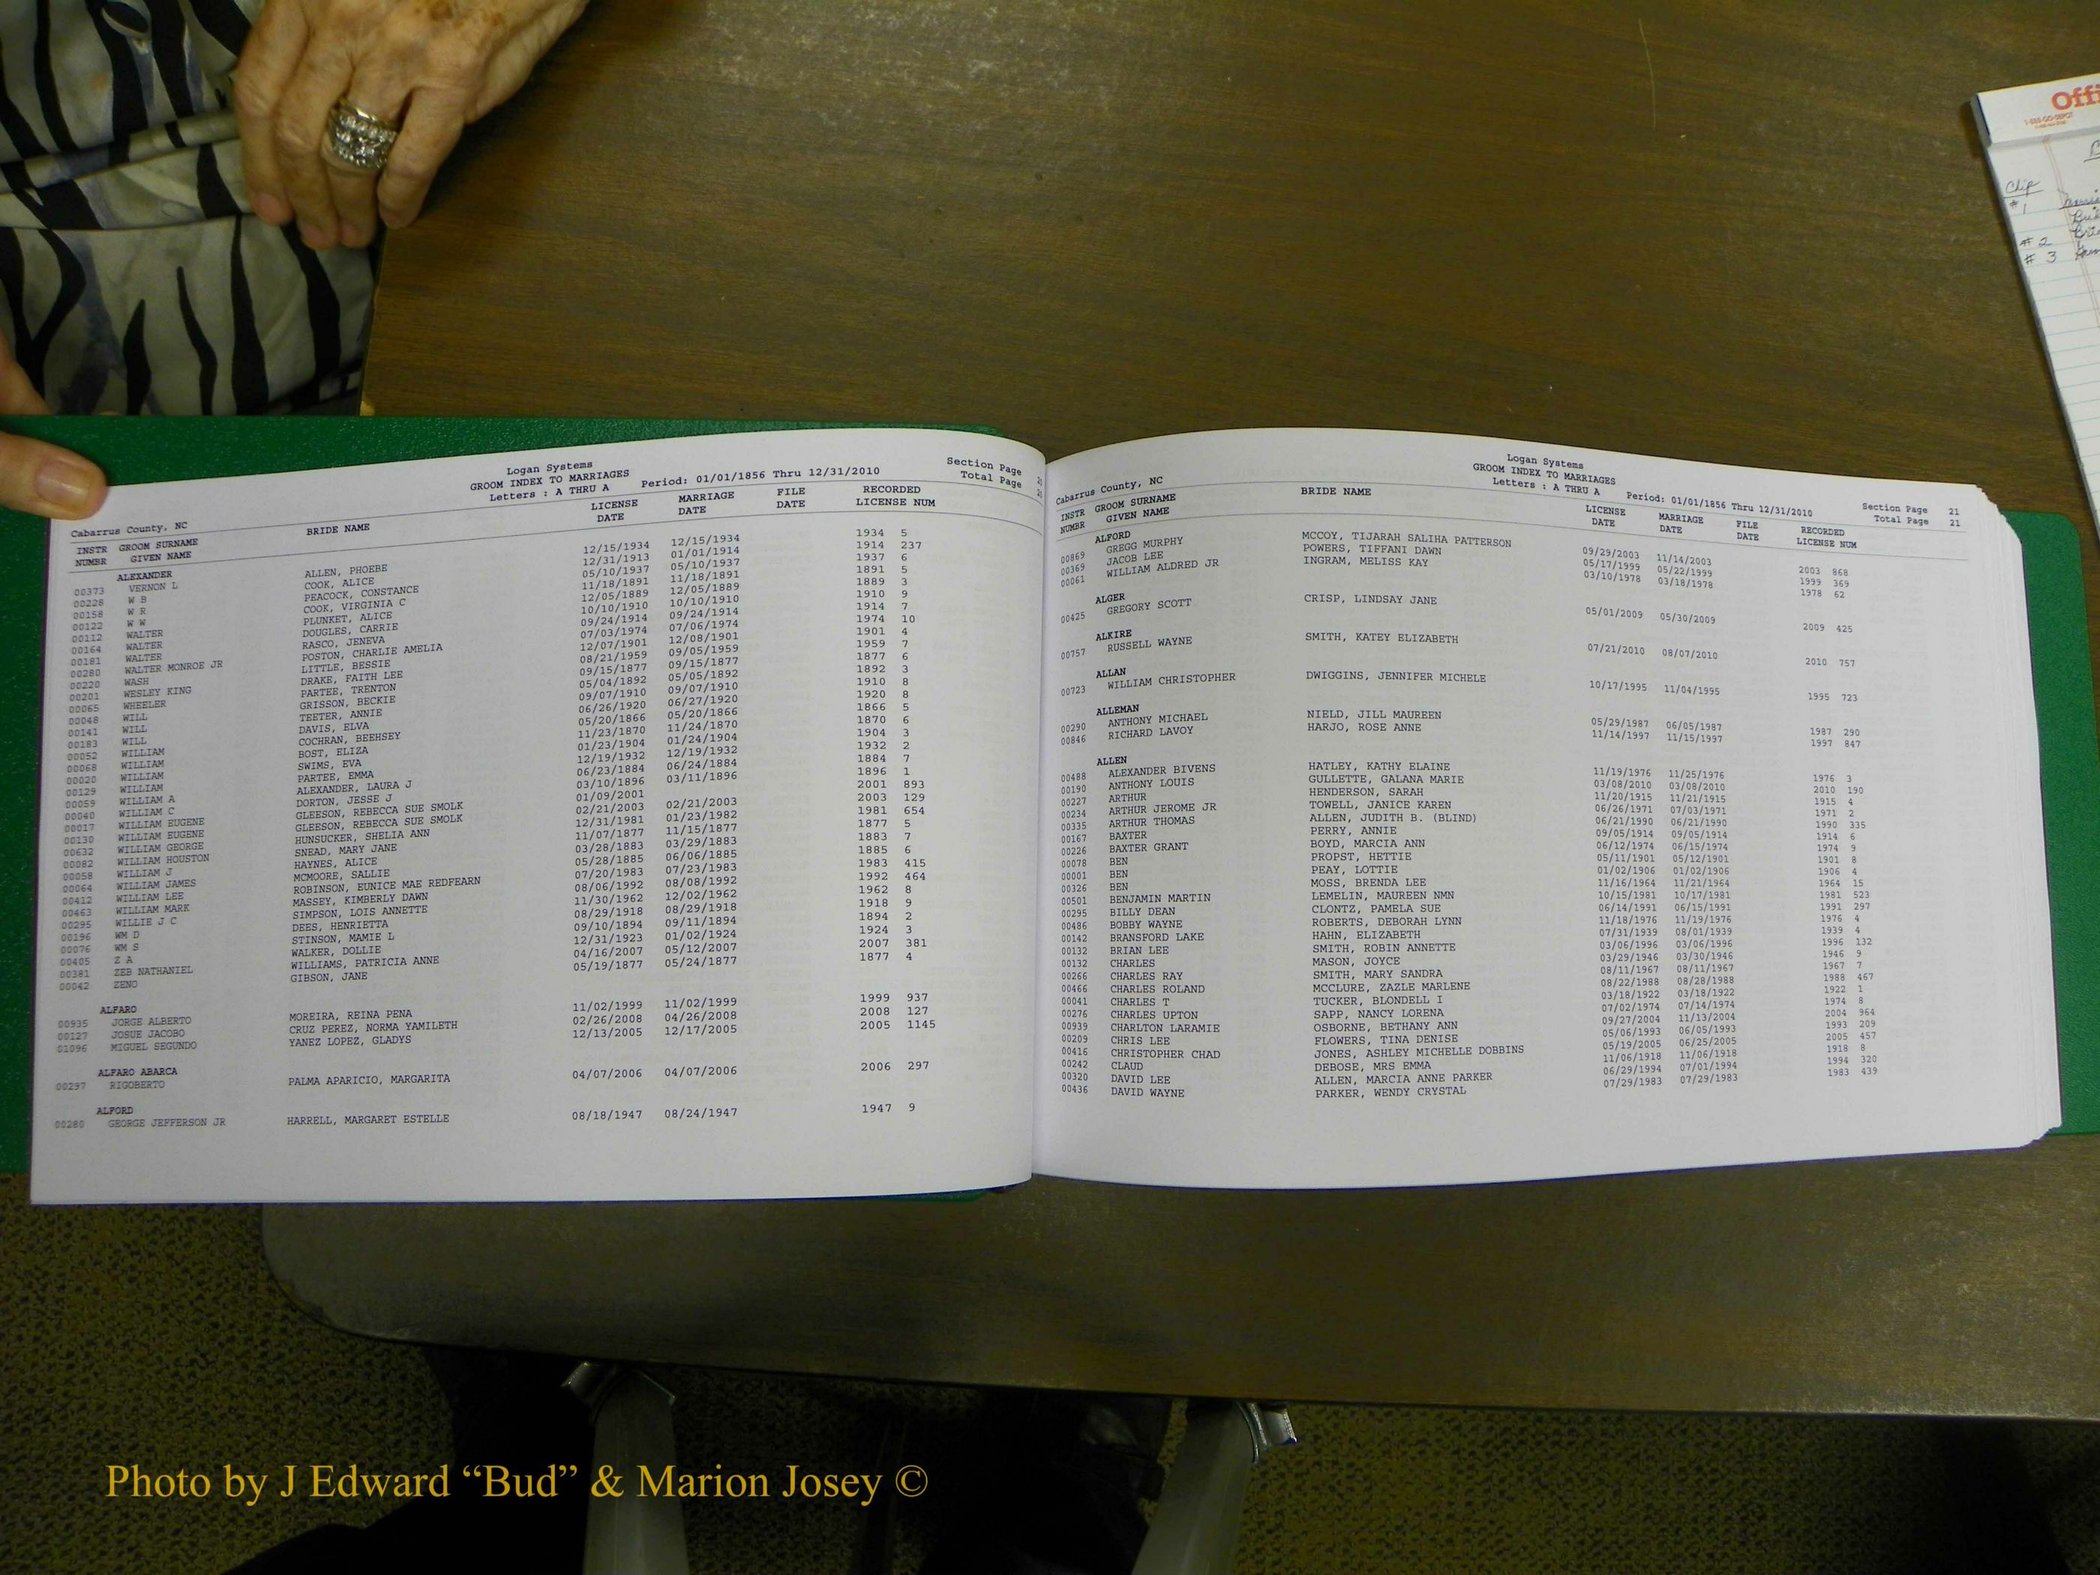 Logan Systems
GROOM INDEX TO MARRIAGES
Letters : A THRU A Period: 01/01/1856 Thru 12/31/2010
Section Page
Total Page
Cabarrus County, NC
INSTR GROOM SURNAME BRIDE NAME LICENSE MARRIAGE FILE RECORDED
NUMBR GIVEN NAME DATE DATE DATE LICENSE NUM
ALEXANDER
00373 VERNON L ALLEN, PHOEBE 12/15/1934 12/15/1934 1934 5
00228 W B COOK, ALICE 12/31/1913 01/01/1914 1914 237
00158 W R PEACOCK, CONSTANCE 05/10/1937 05/10/1937 1937 6
00122 W W COOK, VIRGINIA C 11/18/1891 11/18/1891 1891 5
00112 WALTER PLUNKET, ALICE 12/05/1889 12/05/1889 1889 3
00164 WALTER DOUGLES, CARRIE 10/10/1910 10/10/1910 1910 9
00181 WALTER RASCO, JENEVA 09/24/1914 09/24/1914 1914 7
00280 WALTER MONROE JR POSTON, CHARLIE AMELIA 07/03/1974 07/06/1974 1974 10
00220 WASH LITTLE, BESSIE 12/07/1901 12/08/1901 1901 4
00201 WESLEY KING DRAKE, FAITH LEE 08/21/1959 09/05/1959 1959 7
00065 WHEELER PARTEE, TRENTON 09/15/1877 09/15/1877 1877 6
00048 WILL GRISSON, BECKIE 05/04/1892 05/05/1892 1892 3
00141 WILL TEETER, ANNIE 09/07/1910 09/07/1910 1910 8
00183 WILL DAVIS, ELVA 06/26/1920 06/27/1920 1920 8
00052 WILLIAM COCHRAN, BEEHSEY 05/20/1866 05/20/1866 1866 5
00068 WILLIAM BOST, ELIZA 11/23/1870 11/24/1870 1870 6
00020 WILLIAM SWIMS, EVA 01/23/1904 01/24/1904 1904 3
00129 WILLIAM PARTEE, EMMA 12/19/1932 12/19/1932 1932 2
00059 WILLIAM A ALEXANDER, LAURA J 06/23/1884 06/24/1884 1884 7
00040 WILLIAM C DORTON, JESSE J 03/10/1896 03/11/1896 1896 1
00017 WILLIAM EUGENE GLEESON, REBECCA SUE SMOLK 01/09/2001 2001 893
00130 WILLIAM EUGENE GLEESON, REBECCA SUE SMOLK 02/21/2003 02/21/2003 2003 129
00632 WILLIAM GEORGE HUNSUCKER, SHELIA ANN 12/31/1981 01/23/1982 1981 654
00082 WILLIAM HOUSTON SNEAD, MARY JANE 11/07/1877 11/15/1877 1877 5
00058 WILLIAM J HAYNES, ALICE 03/28/1883 03/29/1883 1883 7
00064 WILLIAM JAMES MCMOORE, SALLIE 05/28/1885 06/06/1885 1885 6
00412 WILLIAM LEE ROBINSON, EUNICE MAE REDFEARN 07/20/1983 07/23/1983 1983 415
00463 WILLIAM MARK MASSEY, KIMBERLY DAWN 08/06/1992 08/08/1992 1992 464
00295 WILLIE J C SIMPSON, LOIS ANNETTE 11/30/1962 12/02/1962 1962 8
00196 WM D DEES, HENRIETTA 08/29/1918 08/29/1918 1918 9
00076 WM S STINSON, MAMIE L 09/10/1894 09/11/1894 1894 2
00405 Z A WALKER, DOLLIE 12/31/1923 01/02/1924 1924 3
00381 ZEB NATHANIEL WILLIAMS, PATRICIA ANNE 04/16/2007 05/12/2007 2007 381
00042 ZENO GIBSON, JANE 05/19/1877 05/24/1877 1877 4
ALFARO
00935 JORGE ALBERTO MOREIRA, REINA PENA 11/02/1999 11/02/1999 1999 937
00127 JOSUE JACOBO CRUZ PEREZ, NORMA YAMILETH 02/26/2008 04/26/2008 2008 127
01096 MIGUEL SEGUNDO YANEZ LOPEZ, GLADYS 12/13/2005 12/17/2005 2005 1145
ALFARO ABARCA
00297 RIGOBERTO PALMA APARICIO, MARGARITA 04/07/2006 04/07/2006 2006 297
ALFORD
00280 GEORGE JEFFERSON JR HARRELL, MARGARET ESTELLE 08/18/1947 08/24/1947 1947 9
Logan Systems
GROOM INDEX TO MARRIAGES
Letters : A THRU A Period: 01/01/1856 Thru 12/31/2010
Section Page 21
Total Page 21
Cabarrus County, NC
INSTR GROOM SURNAME BRIDE NAME LICENSE MARRIAGE FILE RECORDED
NUMBR GIVEN NAME DATE DATE DATE LICENSE NUM
ALFORD
00869 GREGG MURPHY MCCOY, TIJARAH SALIHA PATTERSON 09/29/2003 11/14/2003 2003 868
00369 JACOB LEE POWERS, TIFFANI DAWN 05/17/1999 05/22/1999 1999 369
00061 WILLIAM ALDRED JR INGRAM, MELISS KAY 03/10/1978 03/18/1978 1978 62
ALGER
00425 GREGORY SCOTT CRISP, LINDSAY JANE 05/01/2009 05/30/2009 2009 425
ALKIRE
00757 RUSSELL WAYNE SMITH, KATEY ELIZABETH 07/21/2010 08/07/2010 2010 757
ALLAN
00723 WILLIAM CHRISTOPHER DWIGGINS, JENNIFER MICHELE 10/17/1995 11/04/1995 1995 723
ALLEMAN
00290 ANTHONY MICHAEL NIELD, JILL MAUREEN 05/29/1987 06/05/1987 1987 290
00846 RICHARD LAVOY HARJO, ROSE ANNE 11/14/1997 11/15/1997 1997 847
ALLEN
00488 ALEXANDER BIVENS HATLEY, KATHY ELAINE 11/19/1976 11/25/1976 1976 3
00190 ANTHONY LOUIS GULLETTE, GALANA MARIE 03/08/2010 03/08/2010 2010 190
00227 ARTHUR HENDERSON, SARAH 11/20/1915 11/21/1915 1915 4
00234 ARTHUR JEROME JR TOWELL, JANICE KAREN 06/26/1971 07/03/1971 1971 2
00335 ARTHUR THOMAS ALLEN, JUDITH B. (BLIND) 06/21/1990 06/21/1990 1990 335
00167 BAXTER PERRY, ANNIE 09/05/1914 09/05/1914 1914 6
00226 BAXTER GRANT BOYD, MARCIA ANN 06/12/1974 06/15/1974 1974 9
00078 BEN PROPST, HETTIE 05/11/1901 05/12/1901 1901 8
00001 BEN PEAY, LOTTIE 01/02/1906 01/02/1906 1906 4
00326 BEN MOSS, BRENDA LEE 11/16/1964 11/21/1964 1964 15
00501 BENJAMIN MARTIN LEMELIN, MAUREEN NMN 10/15/1981 10/17/1981 1981 523
00295 BILLY DEAN CLONTZ, PAMELA SUE 06/14/1991 06/15/1991 1991 297
00486 BOBBY WAYNE ROBERTS, DEBORAH LYNN 11/18/1976 11/19/1976 1976 4
00142 BRANSFORD LAKE HAHN, ELIZABETH 07/31/1939 08/01/1939 1939 4
00132 BRIAN LEE SMITH, ROBIN ANNETTE 03/06/1996 03/06/1996 1996 132
00132 CHARLES MASON, JOYCE 03/29/1946 03/30/1946 1946 9
00266 CHARLES RAY SMITH, MARY SANDRA 08/11/1967 08/11/1967 1967 7
00466 CHARLES ROLAND MCCLURE, ZAZLE MARLENE 08/22/1988 08/28/1988 1988 467
00041 CHARLES T TUCKER, BLONDELL I 03/18/1922 03/18/1922 1922 1
00276 CHARLES UPTON SAPP, NANCY LORENA 07/02/1974 07/14/1974 1974 8
00939 CHARLTON LARAMIE OSBORNE, BETHANY ANN 09/27/2004 11/13/2004 2004 964
00209 CHRIS LEE FLOWERS, TINA DENISE 05/06/1993 06/05/1993 1993 209
00416 CHRISTOPHER CHAD JONES, ASHLEY MICHELLE DOBBINS 05/19/2005 06/25/2005 2005 457
00242 CLAUD DEBOSE, MRS EMMA 11/06/1918 11/06/1918 1918 8
00320 DAVID LEE ALLEN, MARCIA ANNE PARKER 06/29/1994 07/01/1994 1994 320
00436 DAVID WAYNE PARKER, WENDY CRYSTAL 07/29/1983 07/29/1983 1983 439
Chip
# 1
# 2
# 3
Photo by J Edward “Bud” & Marion Josey ©